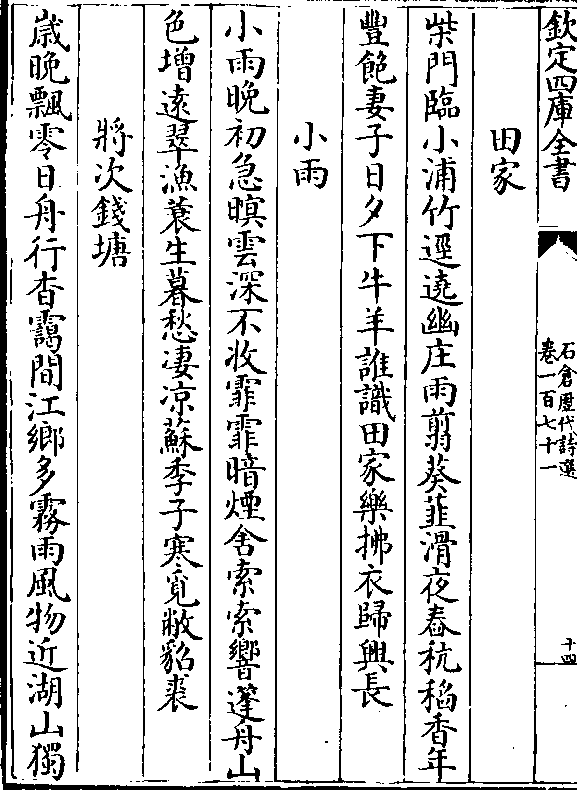 欽定四庫全書
石倉歷代詩選
卷一百七十一
十四
田家
柴門臨小浦竹逕遶幽庄雨翦葵韭滑夜舂秔稻香年
豐飽妻子日夕下牛羊誰識田家樂拂衣歸興長
小雨
小雨晚初急暝雲深不收霏霏暗煙舍索索響篷舟山
色增遠翠漁蓑生暮愁凄凉蘇季子寒覓敝貂裘
將次錢塘
嵗晚飄零日舟行杳靄間江鄉多霧雨風物近湖山獨